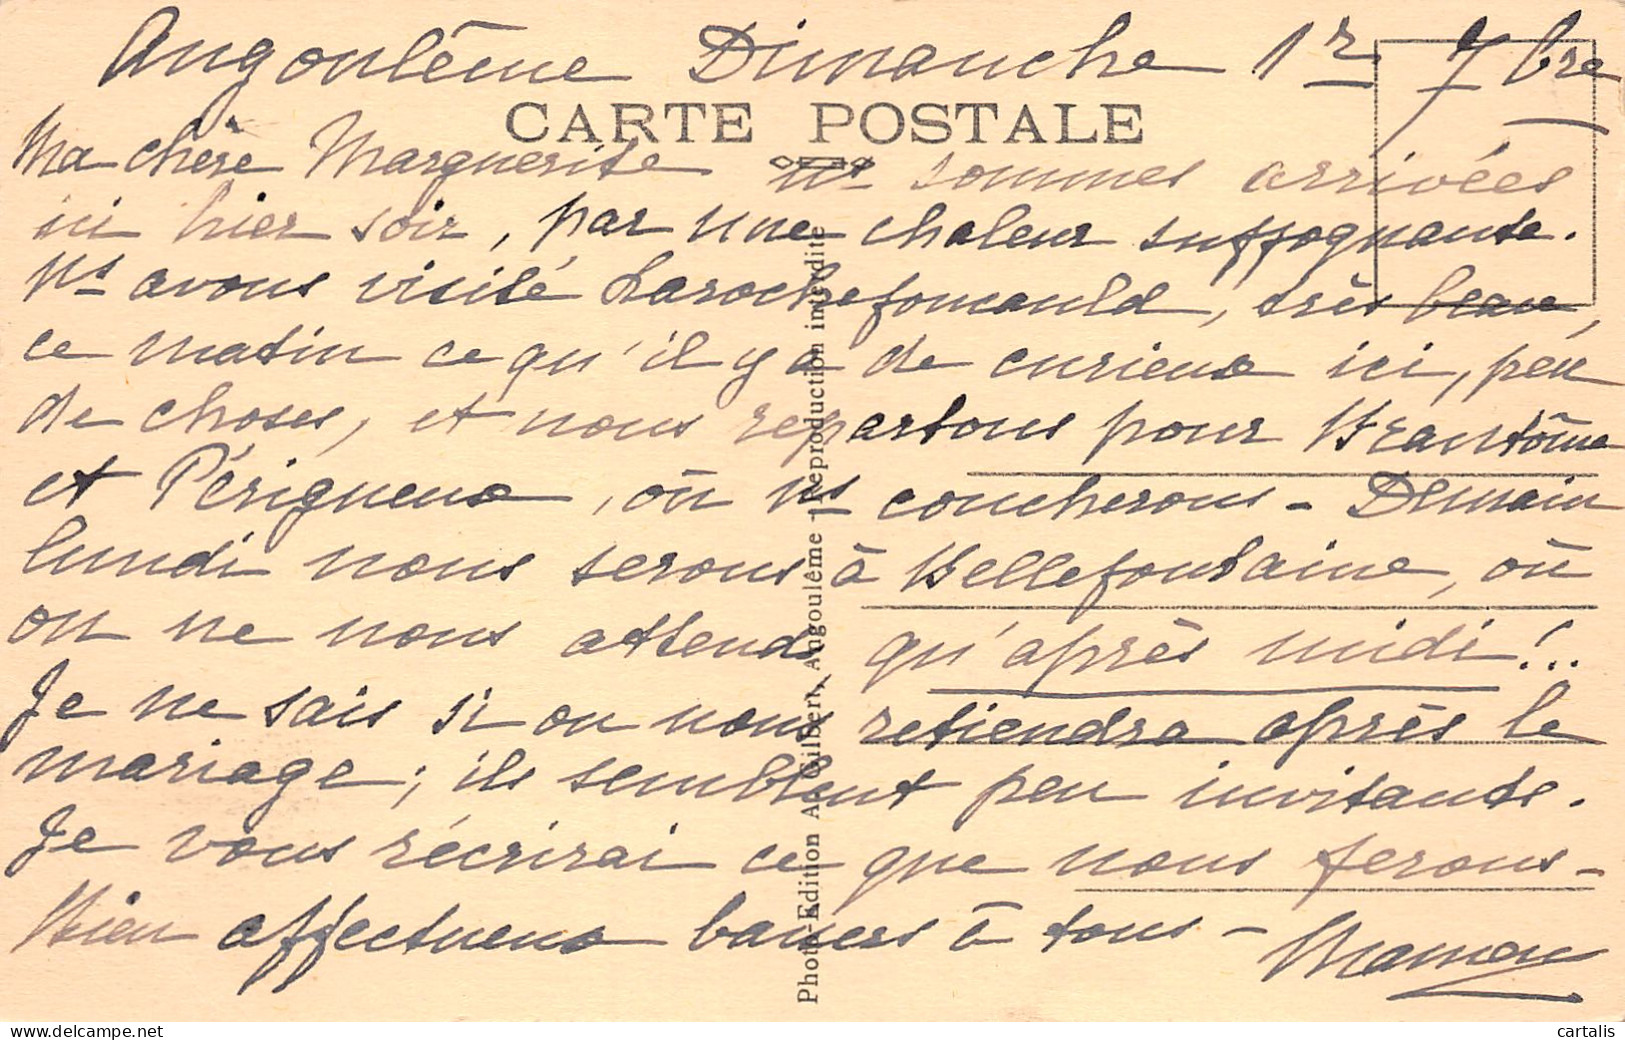 Angoulême Dimanche 1r 7bre
CARTE POSTALE
Ma chère Marguerite ns sommes arrivées
ici hier soir, par une chaleur suffoquante.
Ns avons visité Larochefoucauld, très beau,
ce matin ce qu'il y a de curieux ici, peu
de choses, et nous repartons pour Brantôme
et Périgueux, où ns coucherons - Demain
lundi nous serons à Bellefontaine, où
on ne nous attend qu'après midi !..
Je ne sais si on nous retiendra après le
mariage ; ils semblent peu invitants.
Je vous récrirai ce que nous ferons -
Bien affectueux baisers à tous - Maman
Photo-Edition A. Gilbert, Angoulême - Reproduction interdite
cartalis